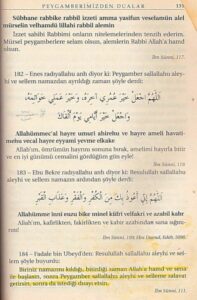 PEYGAMBERİMİZDEN DUALAR 135
Sübhane rabbike rabbil izzeti amma yasifun veselamün alel
mürselin velhamdü lillahi rabbil alemin
İzzet sahibi Rabbimi onların nitelemelerinden tenzih ederim.
Mürsel peygamberlere selam olsun, alemlerin Rabbi Allah'a hamd
olsun.
İbn Sünni, 117.
182 – Enes radıyallahu anh diyor ki: Peygamber sallallahu aley-
hi ve sellem namazdan ayrıldığı zaman şöyle derdi:
اَللَّهُمَّ اجْعَلْ خَيْرَ عُمْرِي آخِرَهُ، وَخَيْرَ عَمَلِي خَوَاتِمَهُ،
وَاجْعَلْ خَيْرَ أَيَّامِي يَوْمَ أَلْقَاكَ
Allahümmec'al hayre umuri ahirehu ve hayre ameli havati-
mehu vecal hayre eyyami yevme elkake
Allah'ım, ömrümün hayrını sonuna bırak, amelimi hayırla bitir
ve en iyi günümü cemalini gördüğüm gün eyle!
İbn Sünni, 118.
183 – Ebu Bekre radıyallahu anh diyor ki: Resulullah sallallahu
aleyhi ve sellem namazların ardından şöyle derdi:
اَللَّهُمَّ إِنِّي أَعُوذُ بِكَ مِنَ الْكُفْرِ وَالْفَقْرِ وَعَذَابِ الْقَبْرِ
Allahümme inni euzu bike minel küfri velfakri ve azabil kabr
Allah'ım, kafirlikten, fakirlikten ve kabir azabından sana sığını-
rım!
İbn Sünni, 109; Ebu Davud, Edeb, 5090.
184 – Fadale bin Ubeyd'den: Resulullah sallallahu aleyhi ve sel-
lem dedi ki:
Biriniz namazını kıldığı, bitirdiği zaman Allah'a hamd ve sena
ile başlasın, sonra Peygamber sallallahu aleyhi ve selleme salavat
getirsin, sonra da istediği duayı etsin.
İbn Sünni, 111.